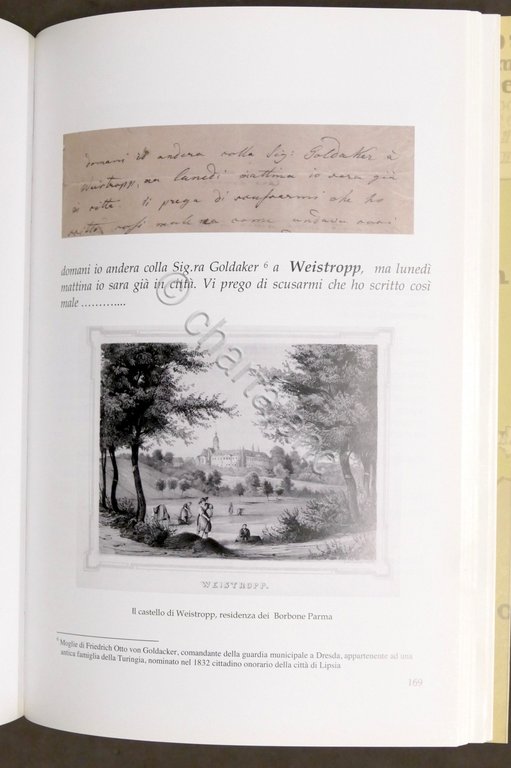 domani io andera colla Sig: Goldaker à
Weistropp, ma lunedi mattina io sara già
in citta. Vi prega di scusarmi che ho
scritto cosi male ma come
domani io andera colla Sig.ra Goldaker 6 a Weistropp, ma lunedì
mattina io sara già in città. Vi prego di scusarmi che ho scritto così
male ...............
© charta
WEISTROPP.
Il castello di Weistropp, residenza dei Borbone Parma
6 Moglie di Friedrich Otto von Goldacker, comandante della guardia municipale a Dresda, appartenente ad una
antica famiglia della Turingia, nominato nel 1832 cittadino onorario della città di Lipsia
169